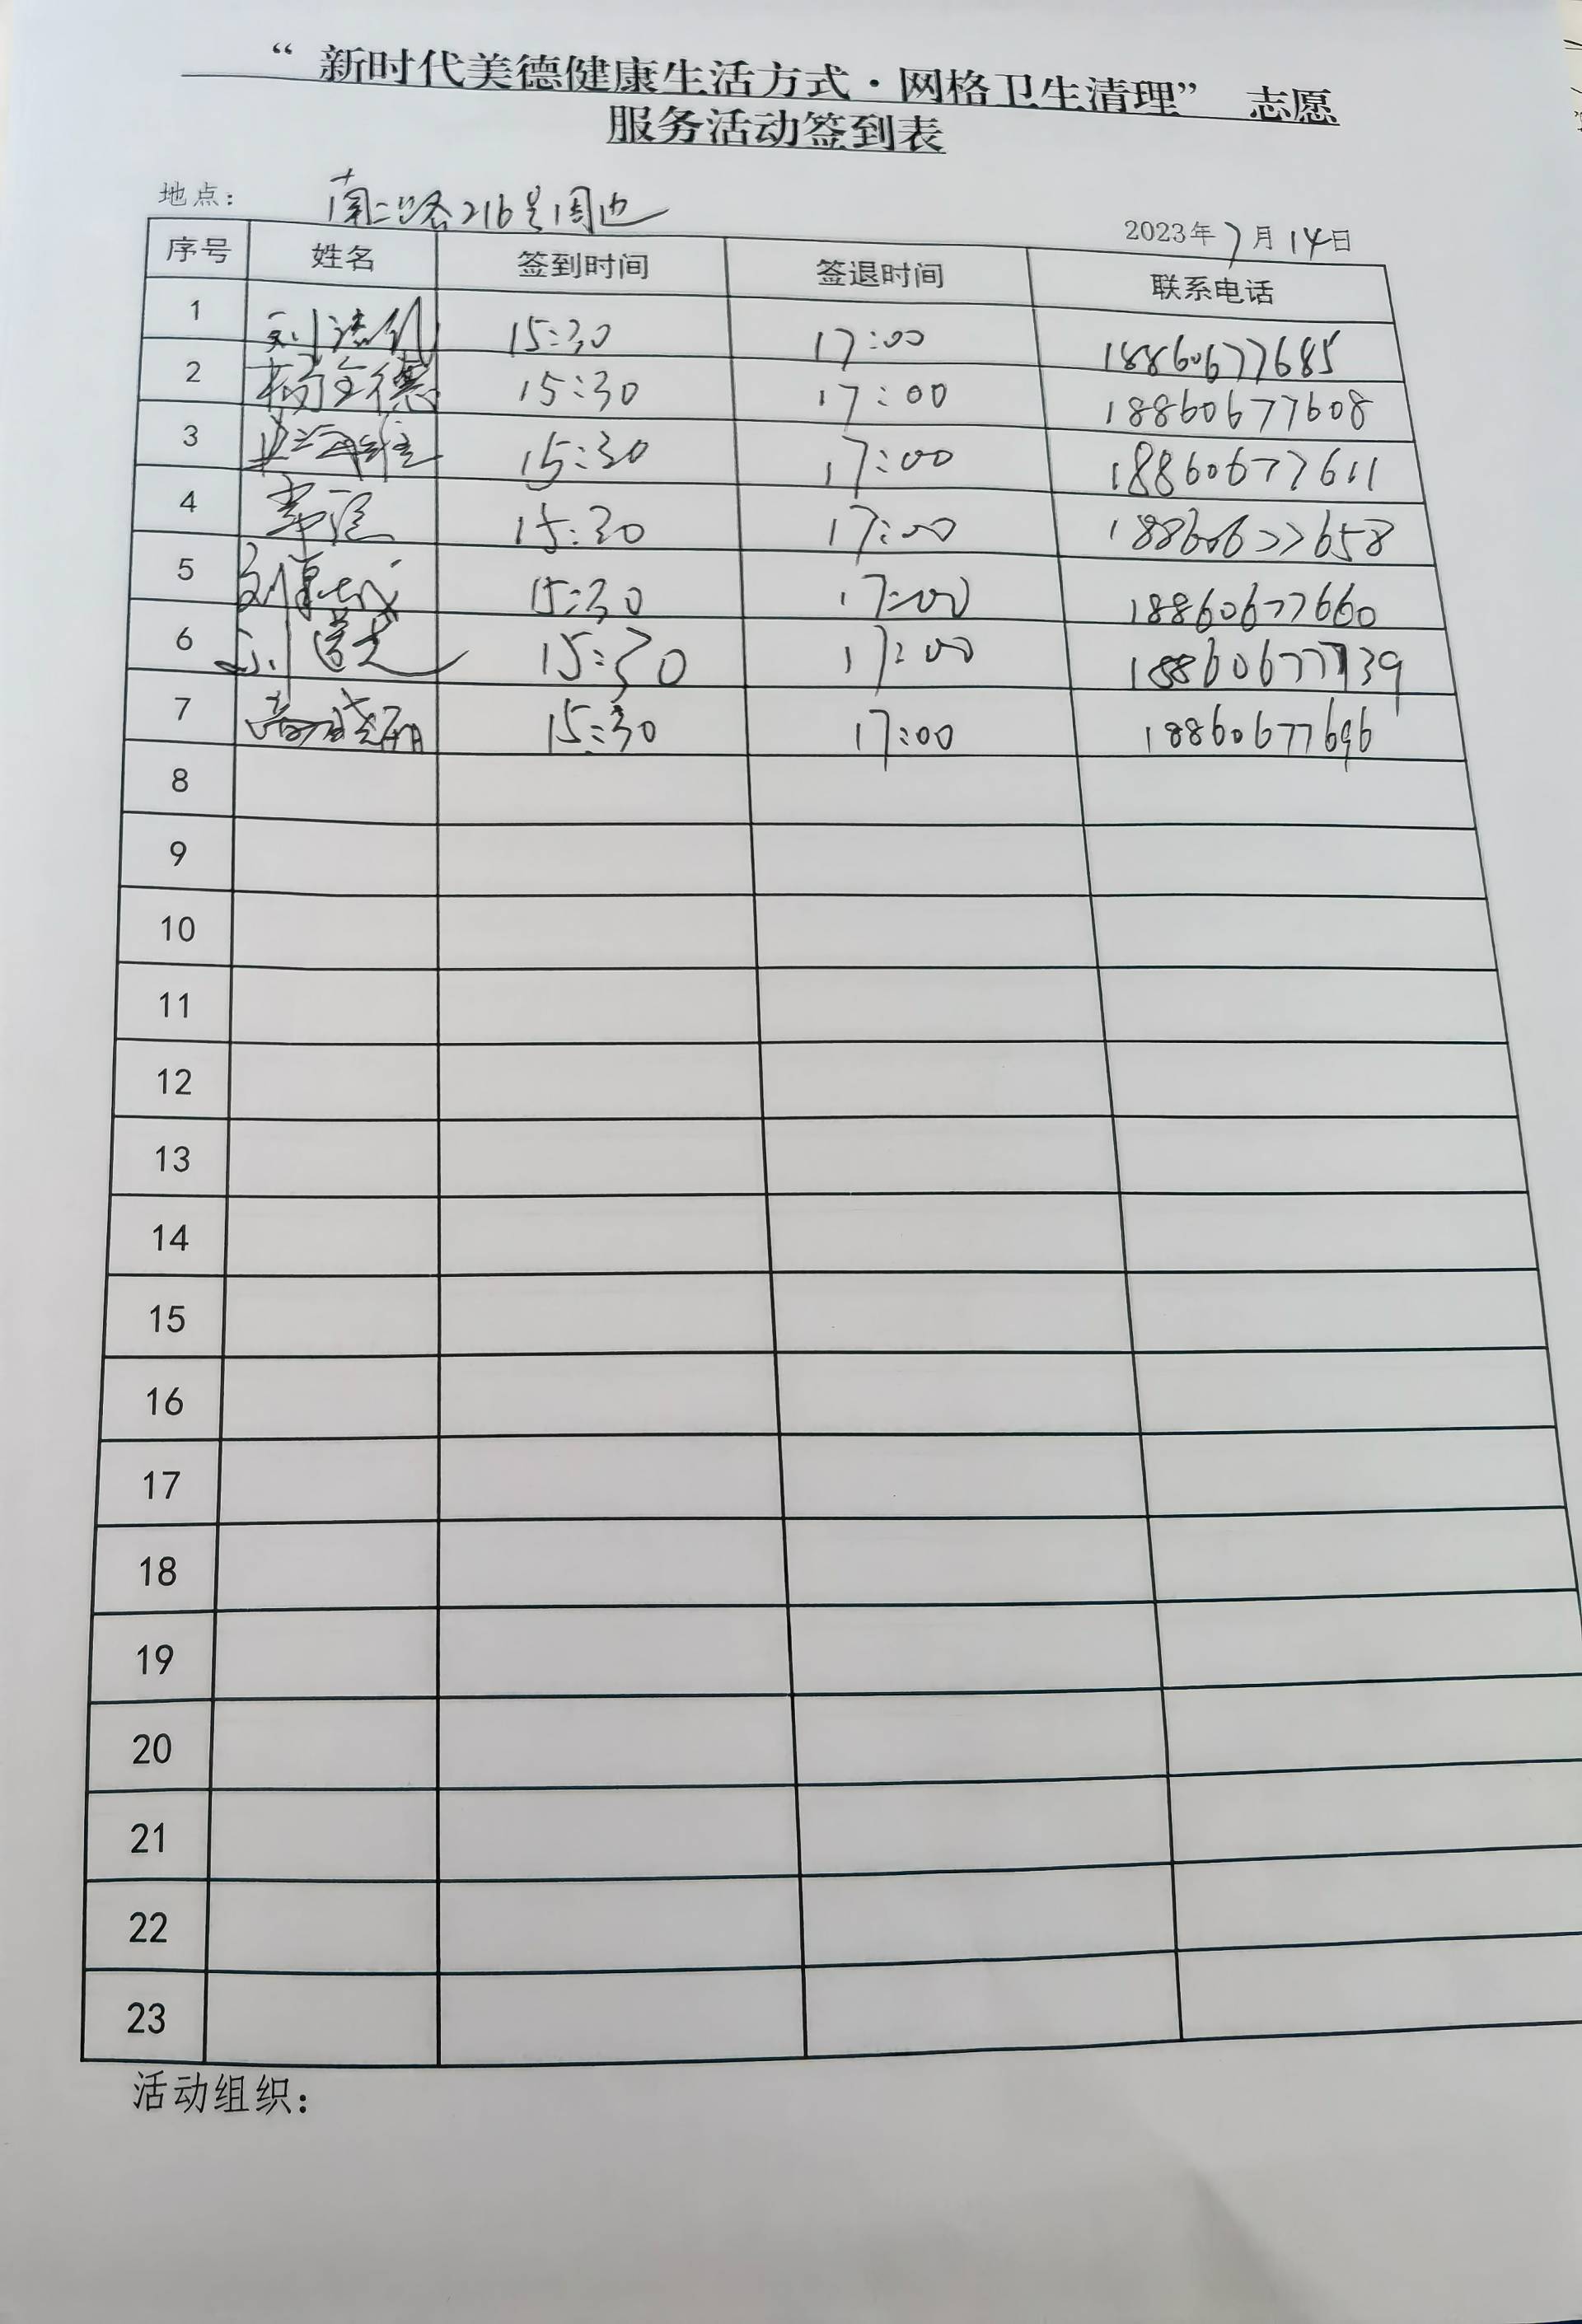 “新时代美德健康生活方式·网格卫生清理” 志愿
服务活动签到表
地点： 南二路216号周边
2023年7月14日
序号 姓名 签到时间 签退时间 联系电话
1 15:30 17:00 18860677685
2 杨全德 15:30 17:00 18860677608
3 15:30 17:00 18860677611
4 15:30 17:00 18860677658
5 15:30 17:00 18860677660
6 15:30 17:00 18860677739
7 15:30 17:00 18860677696
8
9
10
11
12
13
14
15
16
17
18
19
20
21
22
23
活动组织：